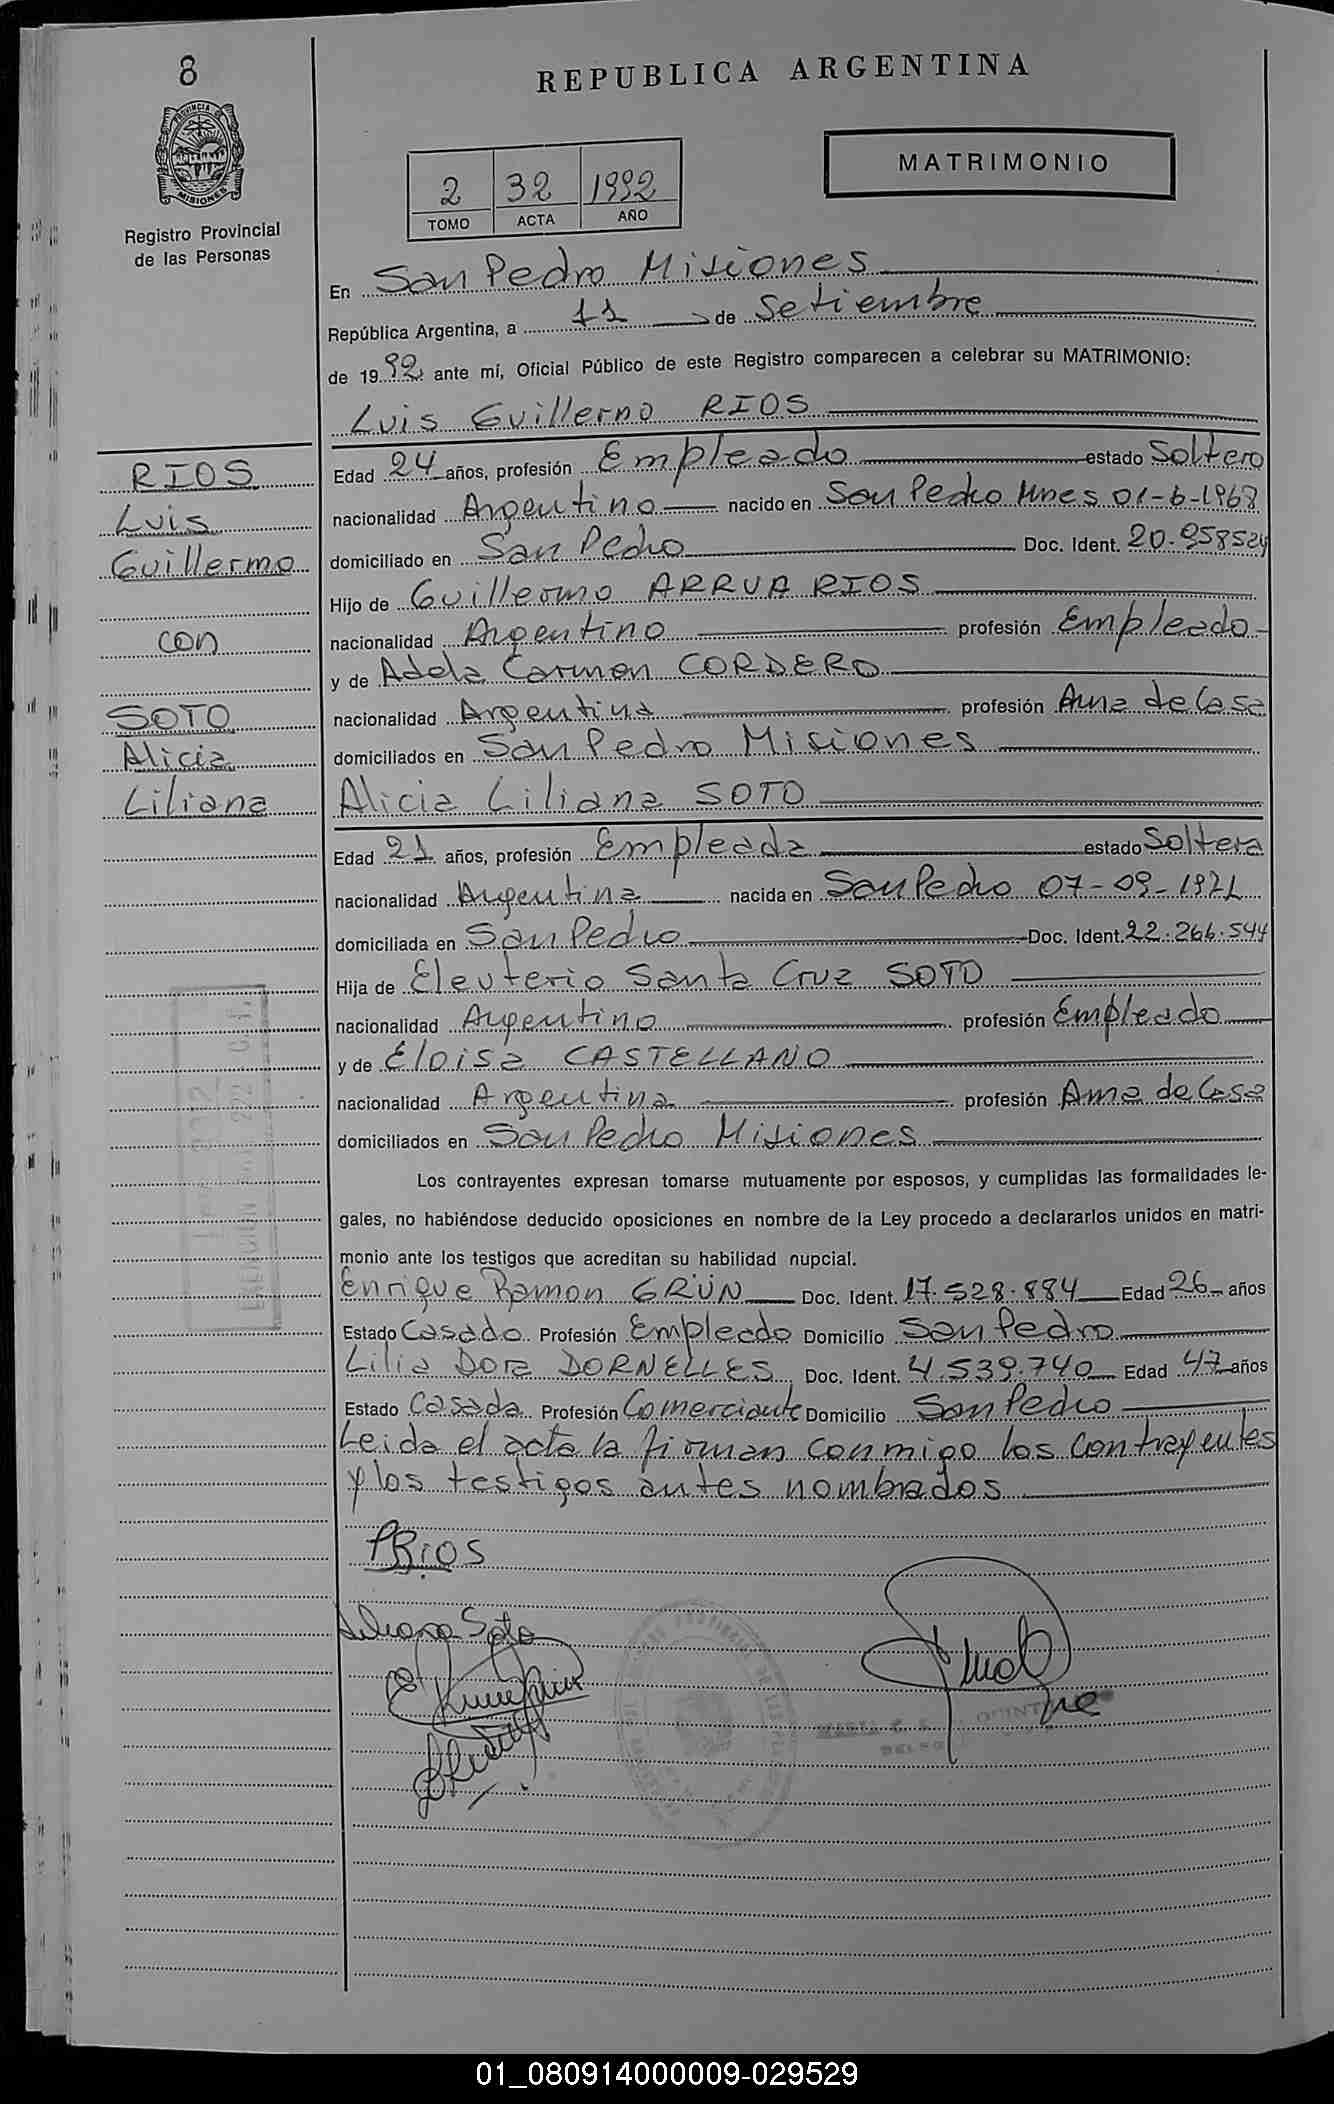 8
REPUBLICA ARGENTINA
PROVINCIA
MISIONES
Registro Provincial
de las Personas
MATRIMONIO
2 32 1992
TOMO ACTA AÑO
En San Pedro Misiones
República Argentina, a 11 de Setiembre
de 1992 ante mí, Oficial Público de este Registro comparecen a celebrar su MATRIMONIO:
Luis Guillermo RIOS
RIOS
Luis
Guillermo
con
SOTO
Alicia
Liliana
Edad 24 años, profesión Empleado estado Soltero
nacionalidad Argentino nacido en San Pedro Mnes 01-6-1968
domiciliado en San Pedro Doc. Ident. 20.958524
Hijo de Guillermo ARRUA RIOS
nacionalidad Argentino profesión Empleado
y de Adela Carmen CORDERO
nacionalidad Argentina profesión Ama de Casa
domiciliados en San Pedro Misiones
Alicia Liliana SOTO
Edad 21 años, profesión Empleada estado Soltera
nacionalidad Argentina nacida en San Pedro 07-09-1971
domiciliada en San Pedro Doc. Ident. 22.266.544
Hija de Eleuterio Santa Cruz SOTO
nacionalidad Argentino profesión Empleado
y de Eloisa CASTELLANO
nacionalidad Argentina profesión Ama de Casa
domiciliados en San Pedro Misiones
Los contrayentes expresan tomarse mutuamente por esposos, y cumplidas las formalidades le-
gales, no habiéndose deducido oposiciones en nombre de la Ley procedo a declararlos unidos en matri-
monio ante los testigos que acreditan su habilidad nupcial.
Enrique Ramon GRÜN Doc. Ident. 17.528.884 Edad 26 años
Estado Casado Profesión Empleado Domicilio San Pedro
Lilia Dora DORNELLES Doc. Ident. 4.539.740 Edad 47 años
Estado Casada Profesión Comerciante Domicilio San Pedro
Leida el acta la firman conmigo los contrayentes
y los testigos antes nombrados
Rios
Liliana Soto
01_080914000009-029529